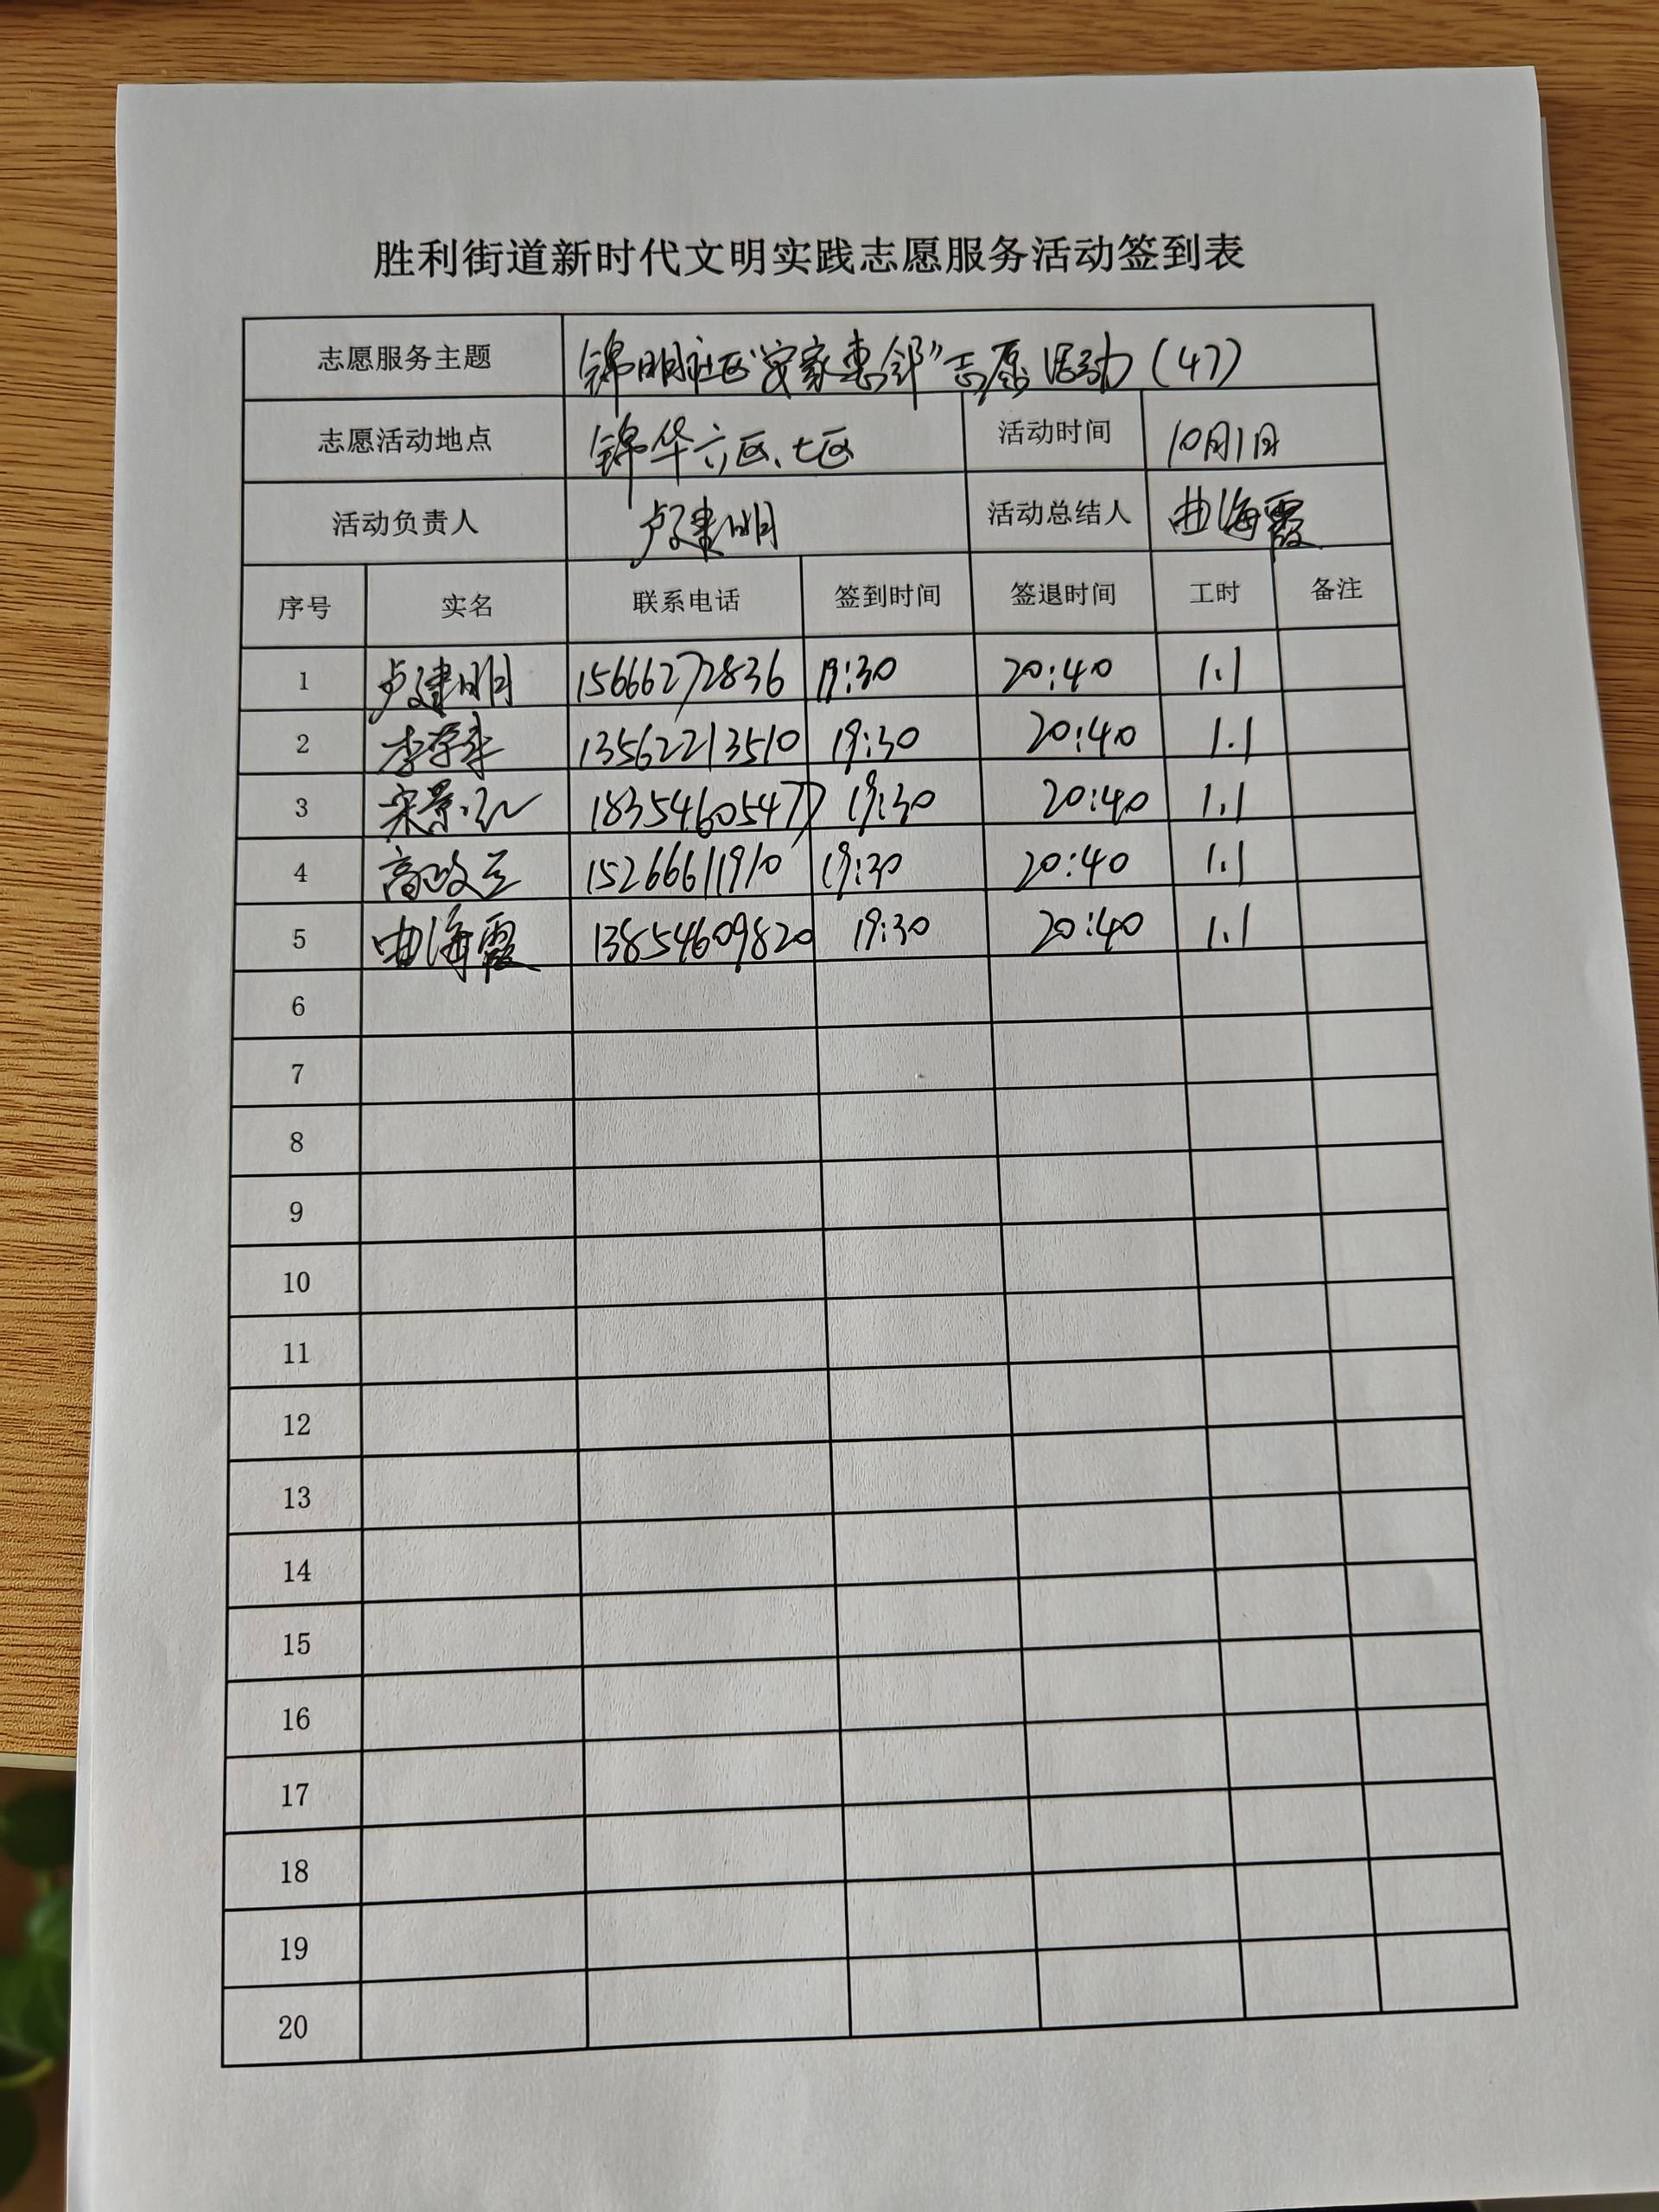 胜利街道新时代文明实践志愿服务活动签到表
志愿服务主题 锦明社区"安家惠邻"志愿活动(47)
志愿活动地点 锦华六区、七区 活动时间 10月1日
活动负责人 卢建明 活动总结人 曲海霞
序号 实名 联系电话 签到时间 签退时间 工时 备注
1 卢建明 15666272836 19:30 20:40 1.1
2 13562213510 19:30 20:40 1.1
3 18354605477 19:30 20:40 1.1
4 15266611910 19:30 20:40 1.1
5 曲海霞 13854609820 19:30 20:40 1.1
6
7
8
9
10
11
12
13
14
15
16
17
18
19
20